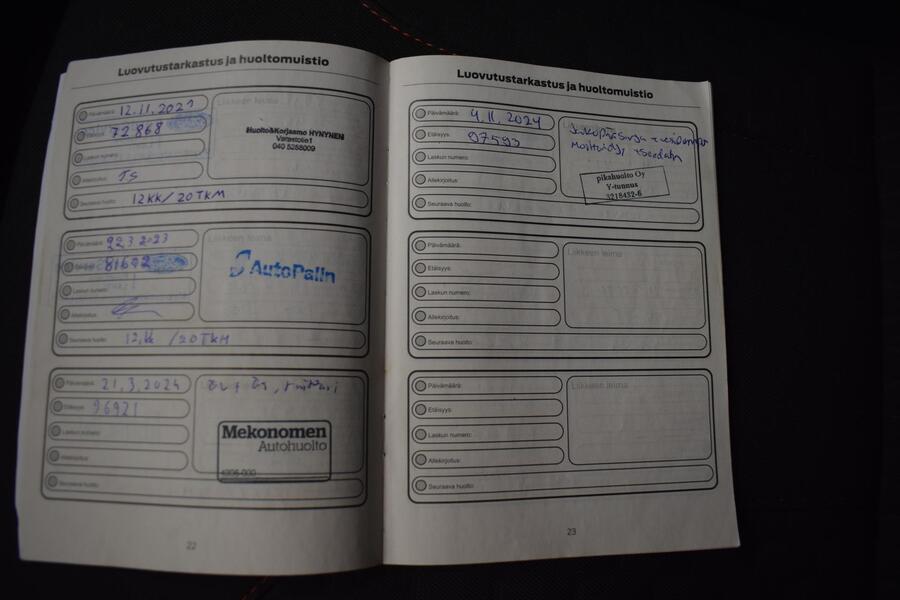 Luovutustarkastus ja huoltomuistio
Päivämäärä: 12.11.2021
Etäisyys: 72868
Laskun numero:
Allekirjoitus: TS
Seuraava huolto: 12KK/20TKM
Liikkeen leima
Huolto&Korjaamo HYNYNEN
Varastotie1
040 5258009
Päivämäärä: 22.3.2023
Etäisyys: 81692
Laskun numero:
Allekirjoitus:
Seuraava huolto: 12kk /20TKM
Liikkeen leima
AutoPalin
Päivämäärä: 21.3.2024
Etäisyys: 96921
Laskun numero:
Allekirjoitus:
Seuraava huolto:
Mekonomen
Autohuolto
22
Luovutustarkastus ja huoltomuistio
Päivämäärä: 4.11.2024
Etäisyys: 07593
Laskun numero:
Allekirjoitus:
Seuraava huolto:
Jakopääsarja
pikahuolto Oy
Y-tunnus
3218432-6
Päivämäärä:
Etäisyys:
Laskun numero:
Allekirjoitus:
Seuraava huolto:
Liikkeen leima
Päivämäärä:
Etäisyys:
Laskun numero:
Allekirjoitus:
Seuraava huolto:
Liikkeen leima
23